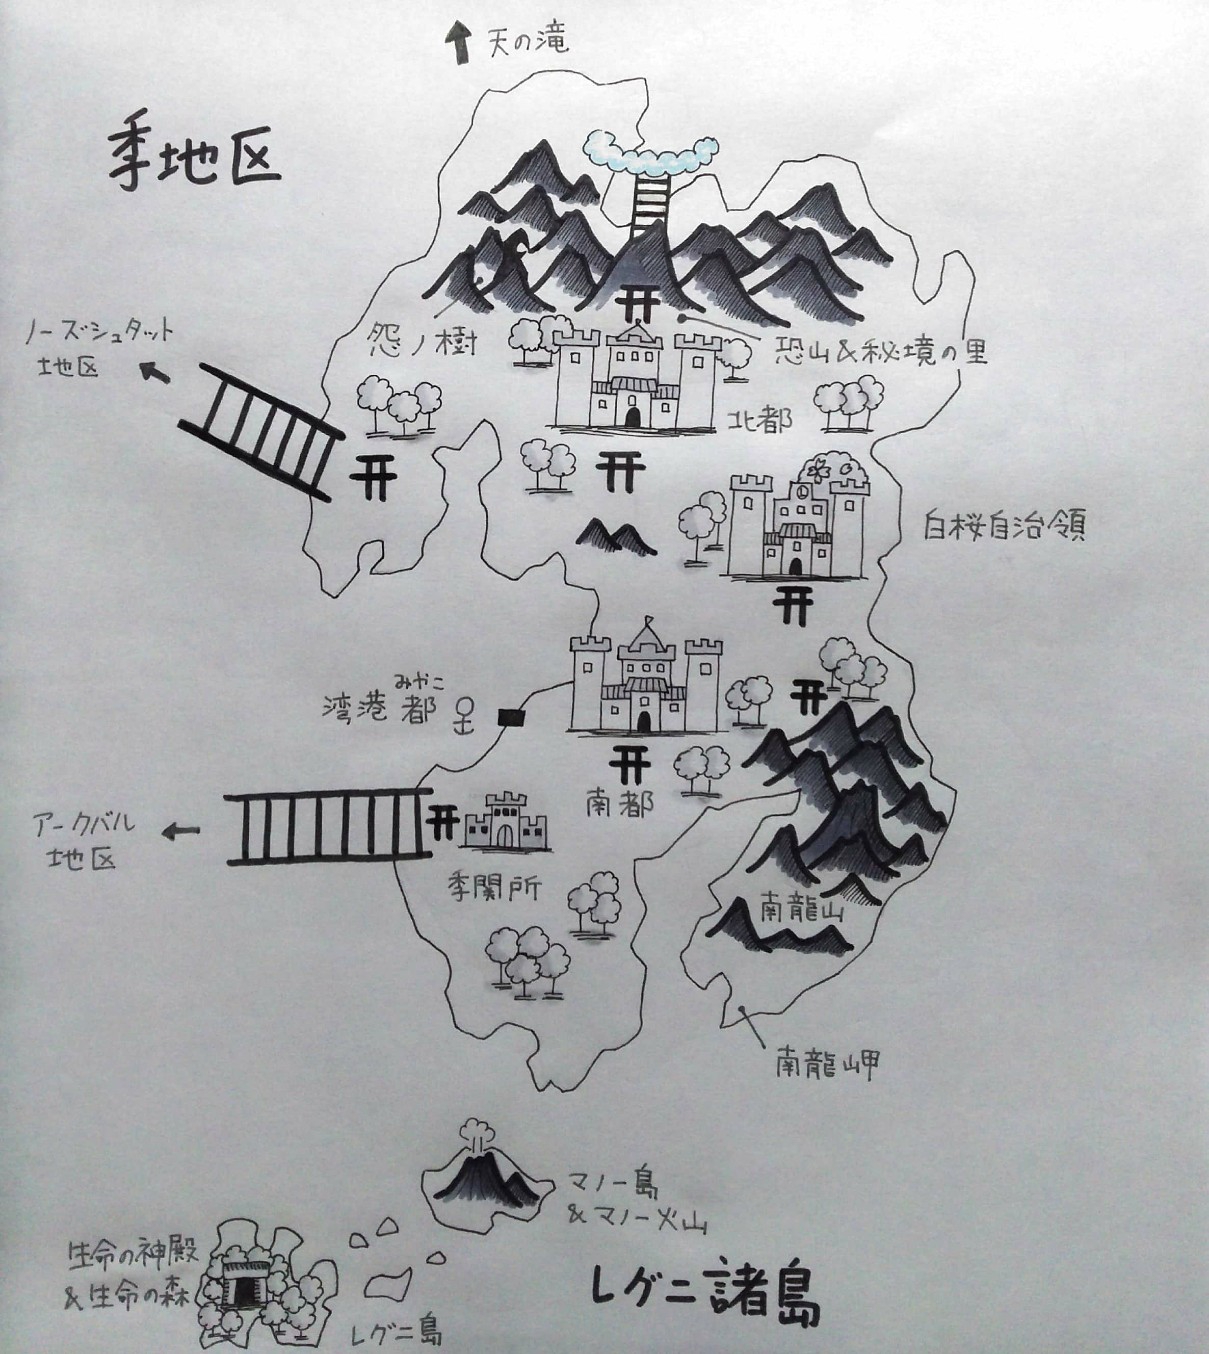 天の滝
季地区
ノーズシュタット
地区
怨ノ樹
恐山&秘境の里
北都
白桜自治領
みやこ
湾港都
南都
アークバル
地区
季関所
南龍山
南龍岬
マノー島
&マノー火山
生命の神殿
&生命の森
レグニ諸島
レグニ島